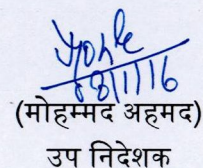 08/11/16
(मोहम्मद अहमद)
उप निदेशक